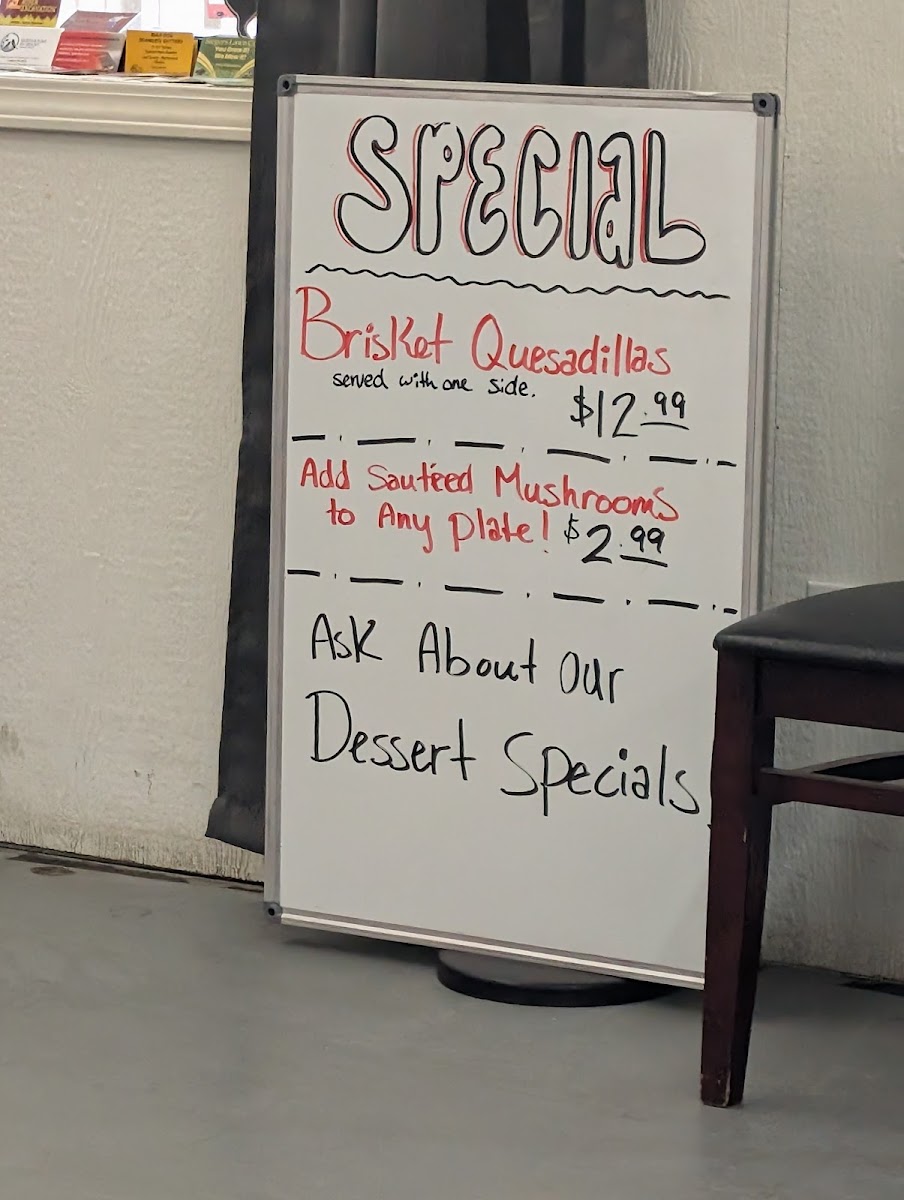 SPECIAL
Brisket Quesadillas
served with one side.
$12.99
Add Sautéed Mushrooms
to Any Plate! $2.99
Ask About our
Dessert Specials